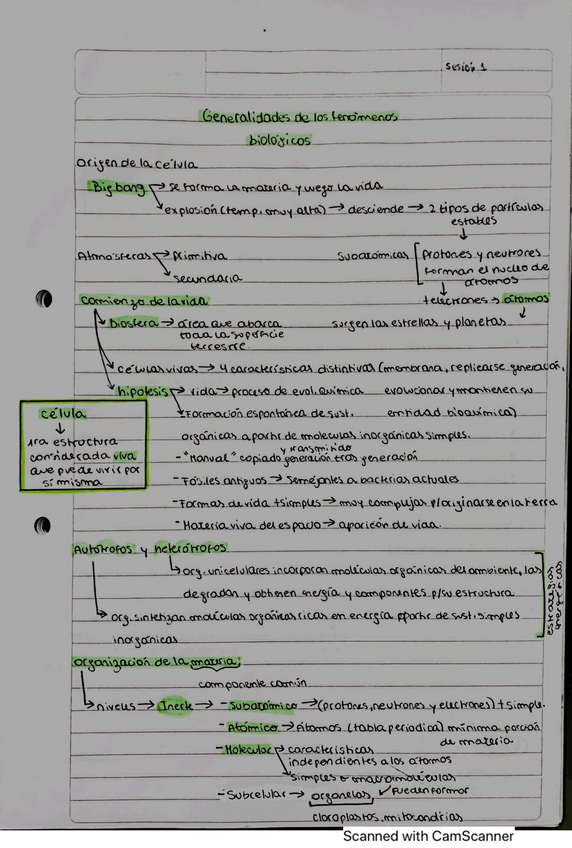 Sesión 1
Generalidades de los fenómenos
biológicos
Origen de la célula
Big bang → se forma la materia y luego la vida
explosión (temp. muy alta) → desciende → 2 tipos de partículas
estables
Atmósferas → primitiva
secundaria
subatómicas [protones y neutrones
forman el nucleo de
átomos
+ electrones → átomos
comienzo de la vida
surgen las estrellas y planetas
biosfera → área que abarca
toda la superficie
terrestre
células vivas → 4 características distintivas (membrana, replicarse generación,
evolucionar y mantienen su
entidad bioquímica)
hipótesis → vida → proceso de evol. química
Formación espontánea de sust.
orgánicas a partir de moleculas inorgánicas simples.
- "Manual" copiado y transmitido generación tras generación
- Fósiles antiguos → semejantes a bacterias actuales
- Formas de vida + simples → muy complejas p/originarse en la tierra
- Materia viva del espacio → aparición de vida.
célula
↓
1ra estructura
considerada viva
que puede vivir por
si misma
Autótrofos y heterótrofos
org. unicelulares incorporan moléculas orgánicas del ambiente, las
degradan y obtienen energía y componentes p/su estructura
org. sintetizan moléculas orgánicas ricas en energía a partir de sust. simples
inorgánicas
estrategias
energéticas
organización de la materia:
componente común
niveles → Inerte → - Subatómico → (protones, neutrones y electrones) + simple.
- Atómico → Átomos (tabla periodica) mínima porción
de materia
- Molecular → características
independientes a los átomos
simples o macromoléculas
- Subcelular → organelas ✓ Pueden formar
cloroplastos, mitocondrias
Scanned with CamScanner